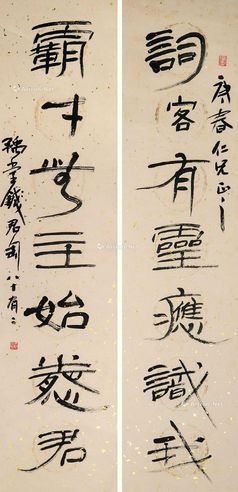 詞客有靈應識我
庚春仁兄正之
霸才無主始憐君
豫堂錢君匋八十有二